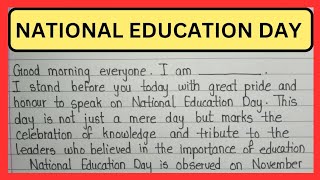 NATIONAL EDUCATION DAY
Good morning everyone. I am __________.
I stand before you today with great pride and
honour to speak on National Education Day. This
day is not just a mere day but marks the
celebration of knowledge and tribute to the
leaders who believed in the importance of education
National Education Day is observed on November